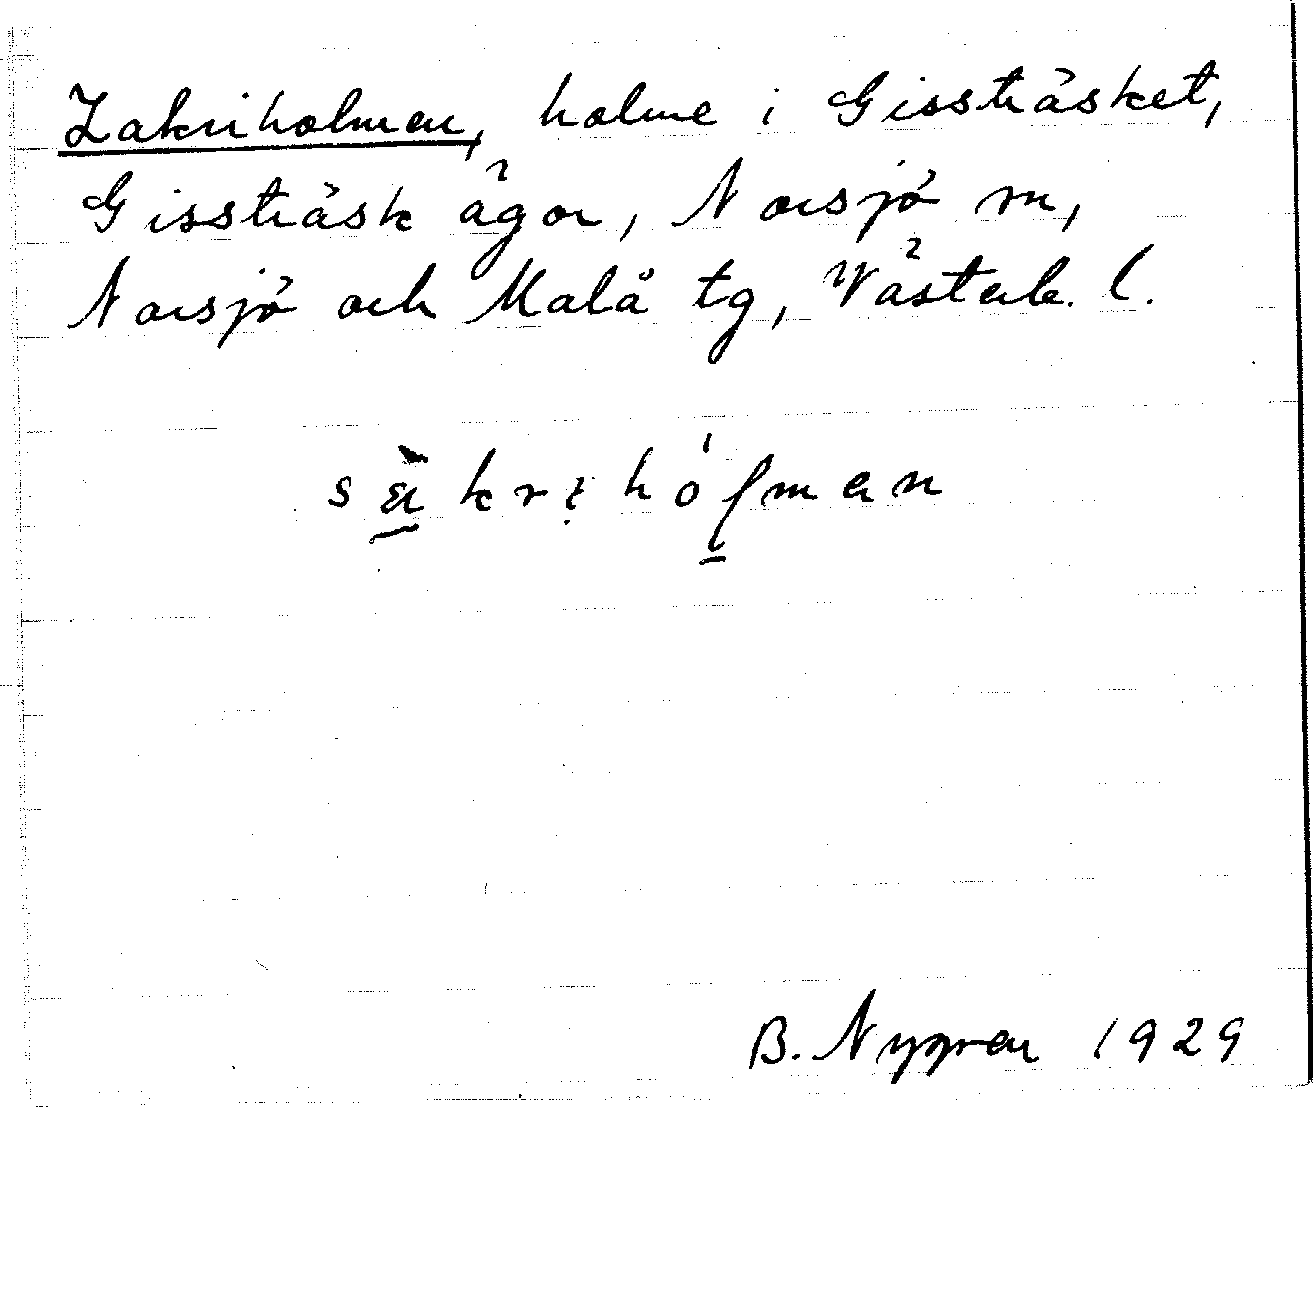 Zakriholmen, holme i Gissträsket,
Gissträsk ägor, Norsjö sn,
Norsjö och Malå tg, Västerb. l.
B. Nygren 1929